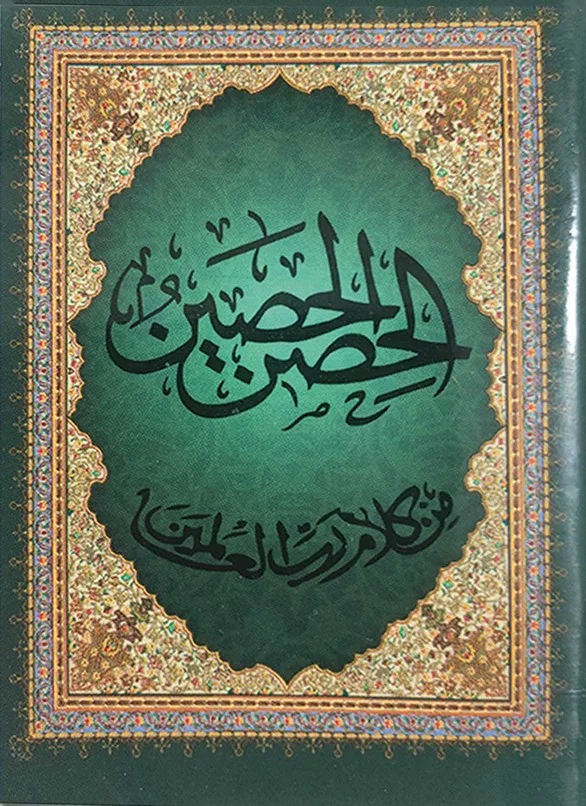 الحصن الحصين
من كلام رب العالمين